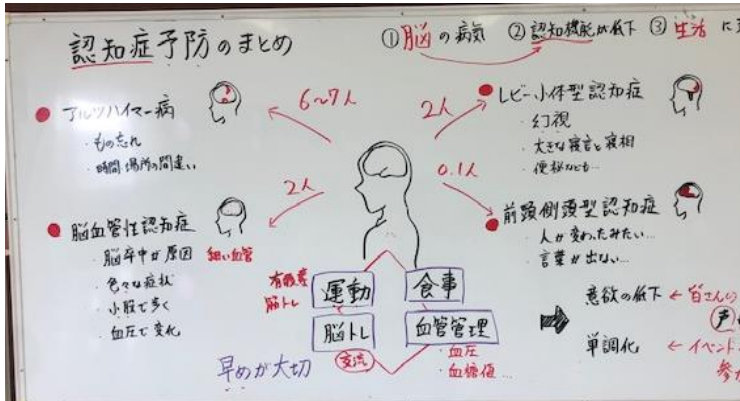 認知症予防のまとめ
①脳の病気 ②認知機能が低下 ③生活に
アルツハイマー病
・もの忘れ
・時間・場所の間違い
6~7人
2人
レビー小体型認知症
・幻視
・大きな寝言と寝相
・便秘なども…
2人
0.1人
脳血管性認知症
・脳卒中が原因
・色々な症状
・小股で歩く
・血圧で変化
細い血管
前頭側頭型認知症
・人が変わったみたい…
・言葉が出ない…
有酸素
筋トレ
運動
食事
脳トレ
血管管理
交流
・血圧
・血糖値…
早めが大切
意欲の低下 ← 皆さんの
声
単調化 ← イベント
参加